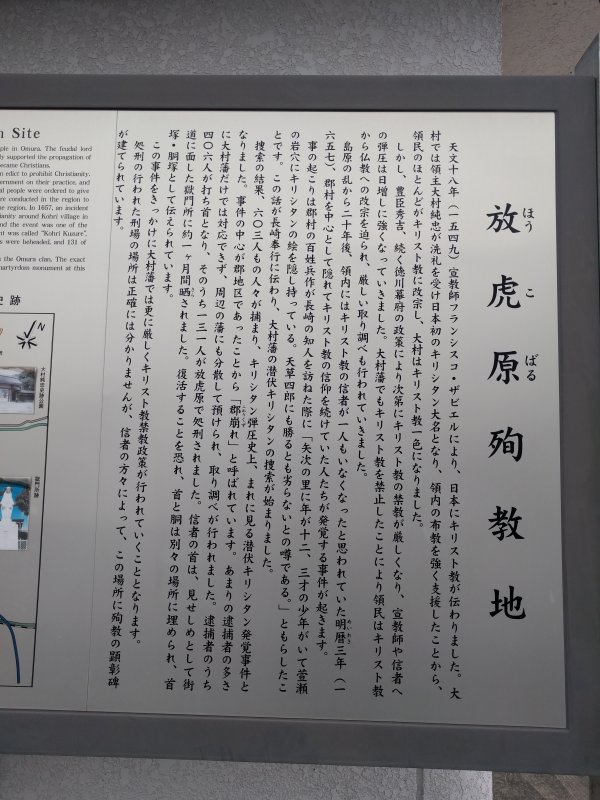 放虎原殉教地
ほうこばる
天文十八年（一五四九）宣教師フランシスコ・ザビエルにより、日本にキリスト教が伝わりました。大
村では領主大村純忠が洗礼を受け日本初のキリシタン大名となり、領内の布教を強く支援したことから、
領民のほとんどがキリスト教に改宗し、大村はキリスト教一色になりました。
しかし、豊臣秀吉、続く徳川幕府の政策により次第にキリスト教の禁教が厳しくなり、宣教師や信者へ
の弾圧は日増しに強くなっていきました。大村藩でもキリスト教を禁止したことにより領民はキリスト教
から仏教への改宗を迫られ、厳しい取り調べも行われていきました。
島原の乱から二十年後、領内にはキリスト教の信者が一人もいなくなったと思われていた明暦三年（一
六五七）、郡村を中心として隠れてキリスト教の信仰を続けていた人たちが発覚する事件が起きます。
事の起こりは郡村の百姓兵作が長崎の知人を訪ねた際に「矢次の里に年が十二、三才の少年がいて萱瀬
の岩穴にキリシタンの絵を隠し持っている。天草四郎にも勝るとも劣らないとの噂である。」ともらしたこ
とです。この話が長崎奉行に伝わり、大村藩の潜伏キリシタンの捜索が始まりました。
捜索の結果、六〇三人もの人々が捕まり、キリシタン弾圧史上、まれに見る潜伏キリシタン発覚事件と
なりました。事件の中心が郡地区であったことから「郡崩れ」と呼ばれています。あまりの逮捕者の多さ
に大村藩だけでは対応できず、周辺の藩にも分散して預けられ、取り調べが行われました。逮捕者のうち
四〇六人が打ち首となり、そのうち一三一人が放虎原で処刑されました。信者の首は、見せしめとして街
道に面した獄門所に約一ヶ月間晒されました。復活することを恐れ、首と胴は別々の場所に埋められ、首
塚・胴塚として伝えられています。
この事件をきっかけに大村藩では更に厳しくキリスト教禁教政策が行われていくこととなります。
処刑の行われた刑場の場所は正確には分かりませんが、信者の方々によって、この場所に殉教の顕彰碑
が建てられています。
Site
ple in Omura. The feudal lord
ly supported the propagation of
became Christians.
an edict to prohibit Christianity,
vernment on their practice, and
al people were ordered to give
were conducted in the region to
the region. In 1657, an incident
tianity around Kohri village in
and the event was one of the
nt was called "Kohri Kuzure".
s were beheaded, and 131 of
the Omura clan. The exact
martyrdom monument at this
史跡
N